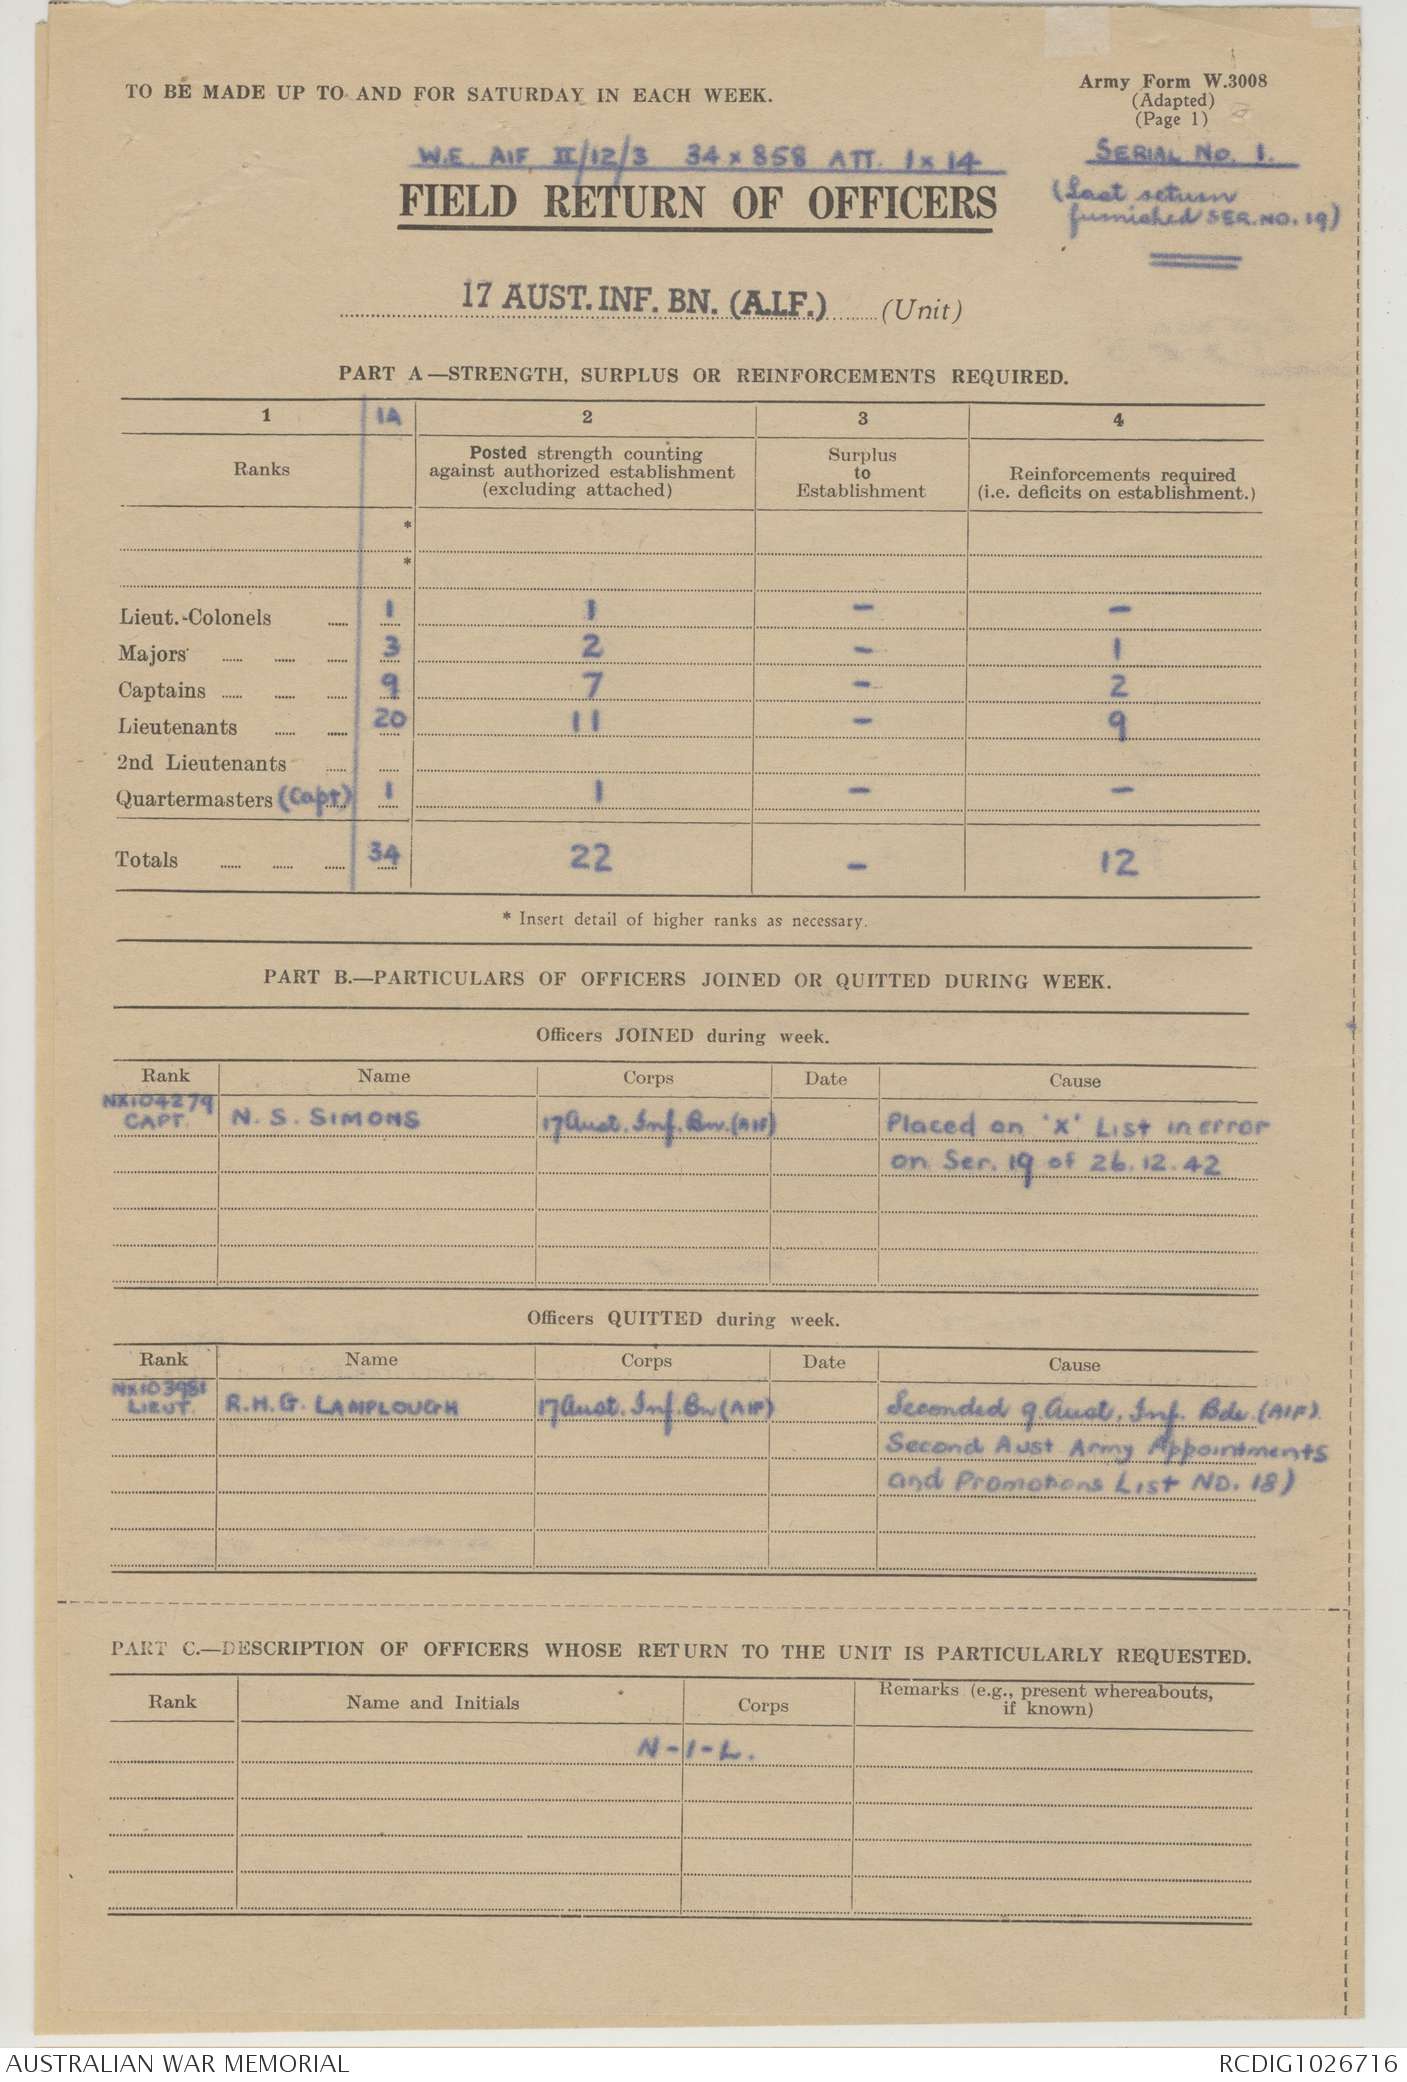 TO BE MADE UP TO AND FOR SATURDAY IN EACH WEEK.
Army Form W.3008
(Adapted)
(Page 1)
W.E. AIF II/12/3 34 x 858 ATT. 1 x 14
SERIAL NO. 1.
FIELD RETURN OF OFFICERS
(Last return
furnished SER. NO. 19)
17 AUST. INF. BN. (A.I.F.) (Unit)
PART A—STRENGTH, SURPLUS OR REINFORCEMENTS REQUIRED.
1 1A 2 3 4
Ranks
Posted strength counting
against authorized establishment
(excluding attached)
Surplus
to
Establishment
Reinforcements required
(i.e. deficits on establishment.)
*
*
Lieut.-Colonels 1 1 – –
Majors 3 2 – 1
Captains 9 7 – 2
Lieutenants 20 11 – 9
2nd Lieutenants
Quartermasters (Capt) 1 1 – –
Totals 34 22 – 12
* Insert detail of higher ranks as necessary.
PART B.—PARTICULARS OF OFFICERS JOINED OR QUITTED DURING WEEK.
Officers JOINED during week.
Rank Name Corps Date Cause
NX104279
CAPT. N. S. SIMONS 17 Aust. Inf. Bn. (AIF) Placed on 'X' List in error
on Ser. 19 of 26.12.42
Officers QUITTED during week.
Rank Name Corps Date Cause
NX103981
LIEUT. R.H.G. LAMPLOUGH 17 Aust. Inf. Bn (AIF) Seconded 9 Aust. Inf. Bde. (AIF).
Second Aust Army Appointments
and Promotions List NO. 18)
PART C.—DESCRIPTION OF OFFICERS WHOSE RETURN TO THE UNIT IS PARTICULARLY REQUESTED.
Rank Name and Initials Corps Remarks (e.g., present whereabouts,
if known)
N-I-L.
AUSTRALIAN WAR MEMORIAL RCDIG1026716